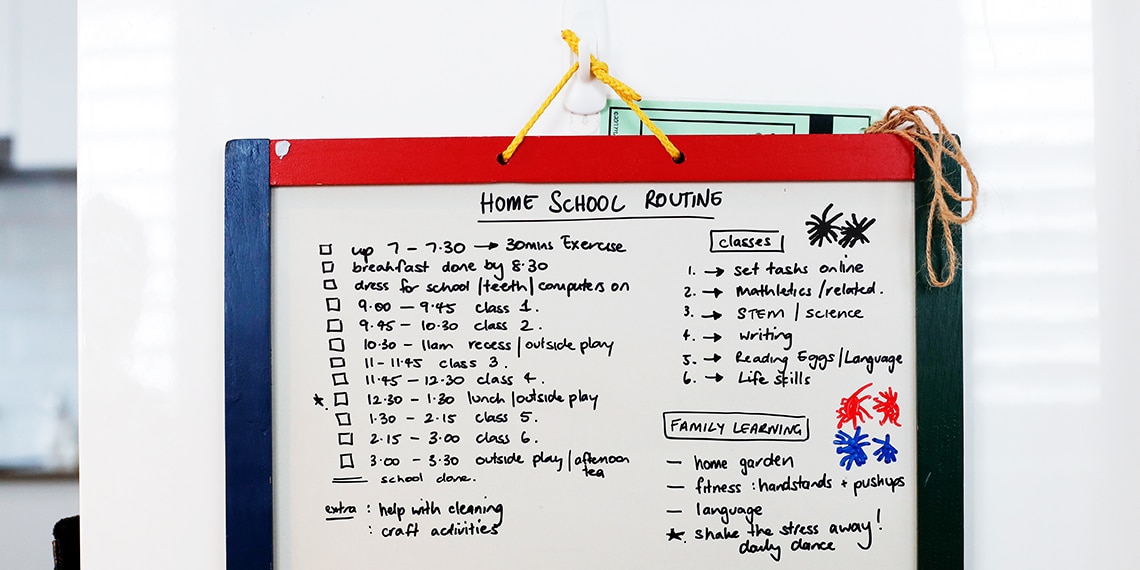 HOME SCHOOL ROUTINE
up 7 - 7.30 → 30mins Exercise
breakfast done by 8.30
dress for school / teeth / computers on
9.00 - 9.45 class 1.
9.45 - 10.30 class 2.
10.30 - 11am recess / outside play
11 - 11.45 class 3.
11.45 - 12.30 class 4.
* 12.30 - 1.30 lunch / outside play
1.30 - 2.15 class 5.
2.15 - 3.00 class 6.
3.00 - 3.30 outside play / afternoon
tea
school done.
extra : help with cleaning
: craft activities
classes
1. → set tasks online
2. → Mathletics / related.
3. → STEM / science
4. → writing
5. → Reading Eggs / Language
6. → Life skills
FAMILY LEARNING
— home garden
— fitness : handstands + pushups
— language
* shake the stress away!
daily dance